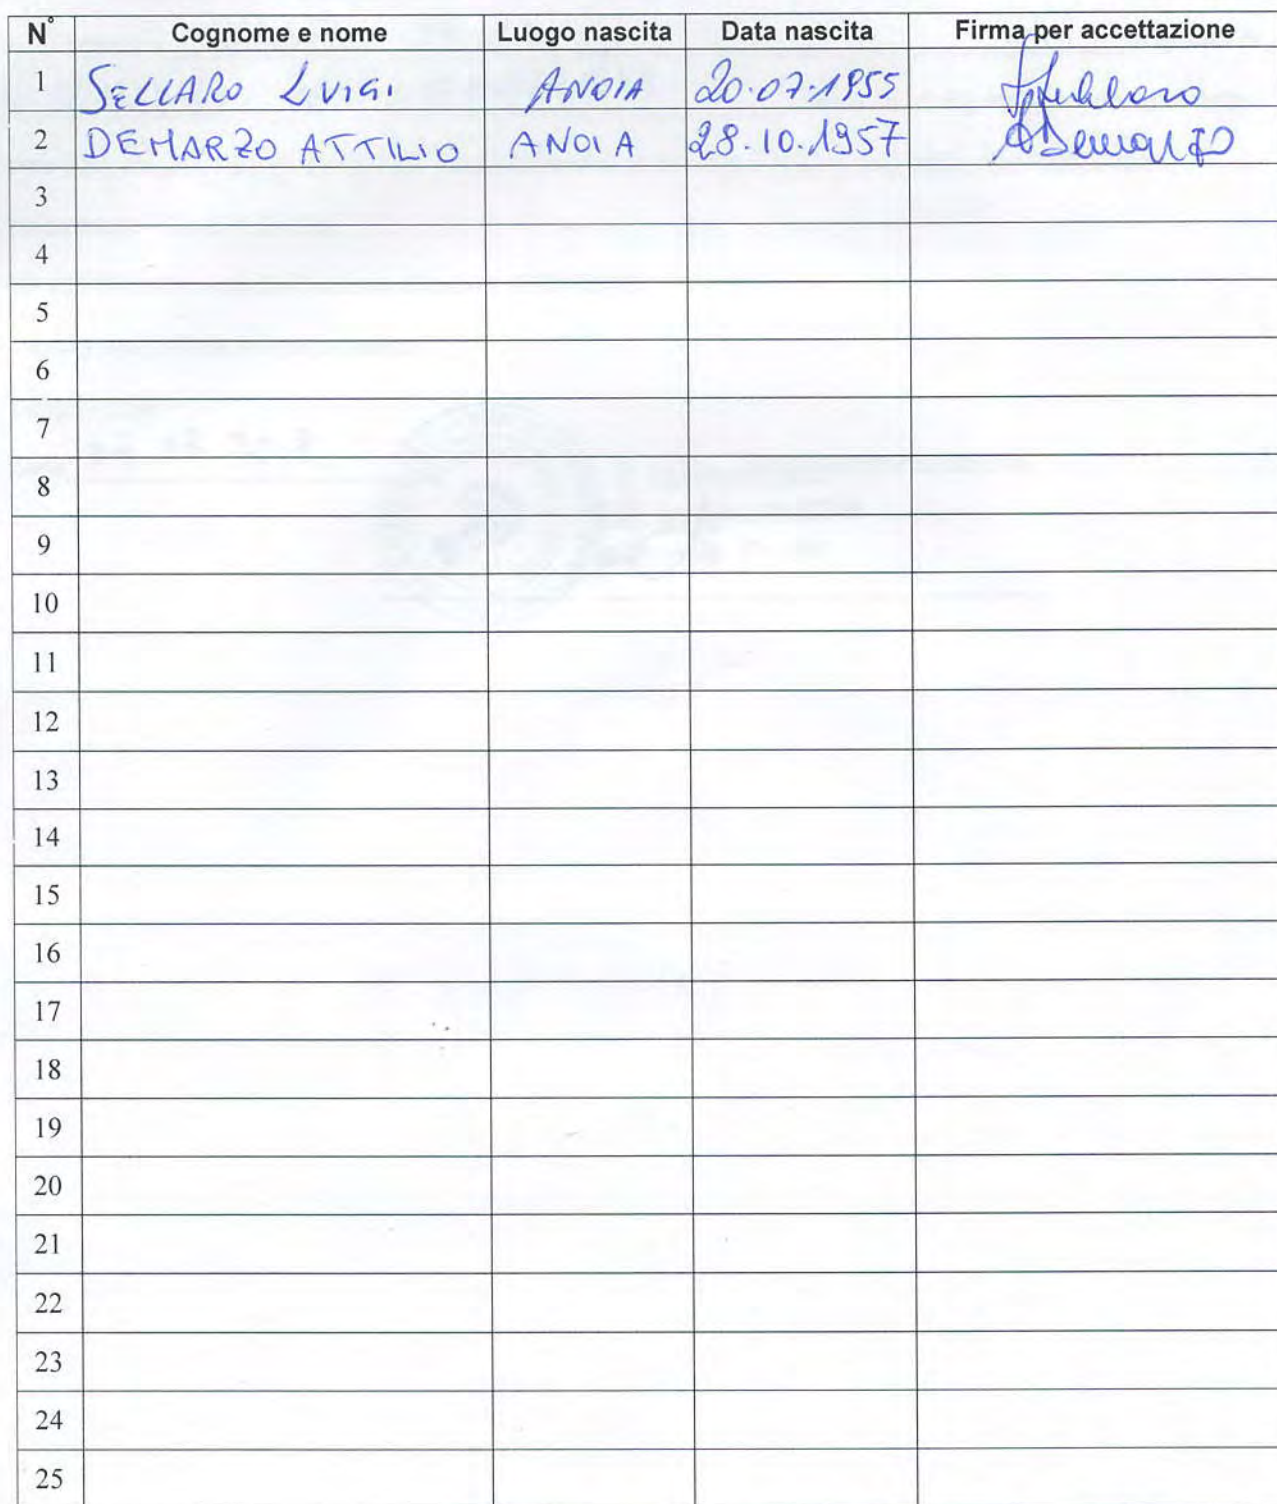 N° Cognome e nome Luogo nascita Data nascita Firma per accettazione
1 SELLARO LUIGI ANOIA 20.07.1955
2 DEMARZO ATTILIO ANOIA 28.10.1957 ADemarzo
3
4
5
6
7
8
9
10
11
12
13
14
15
16
17
18
19
20
21
22
23
24
25